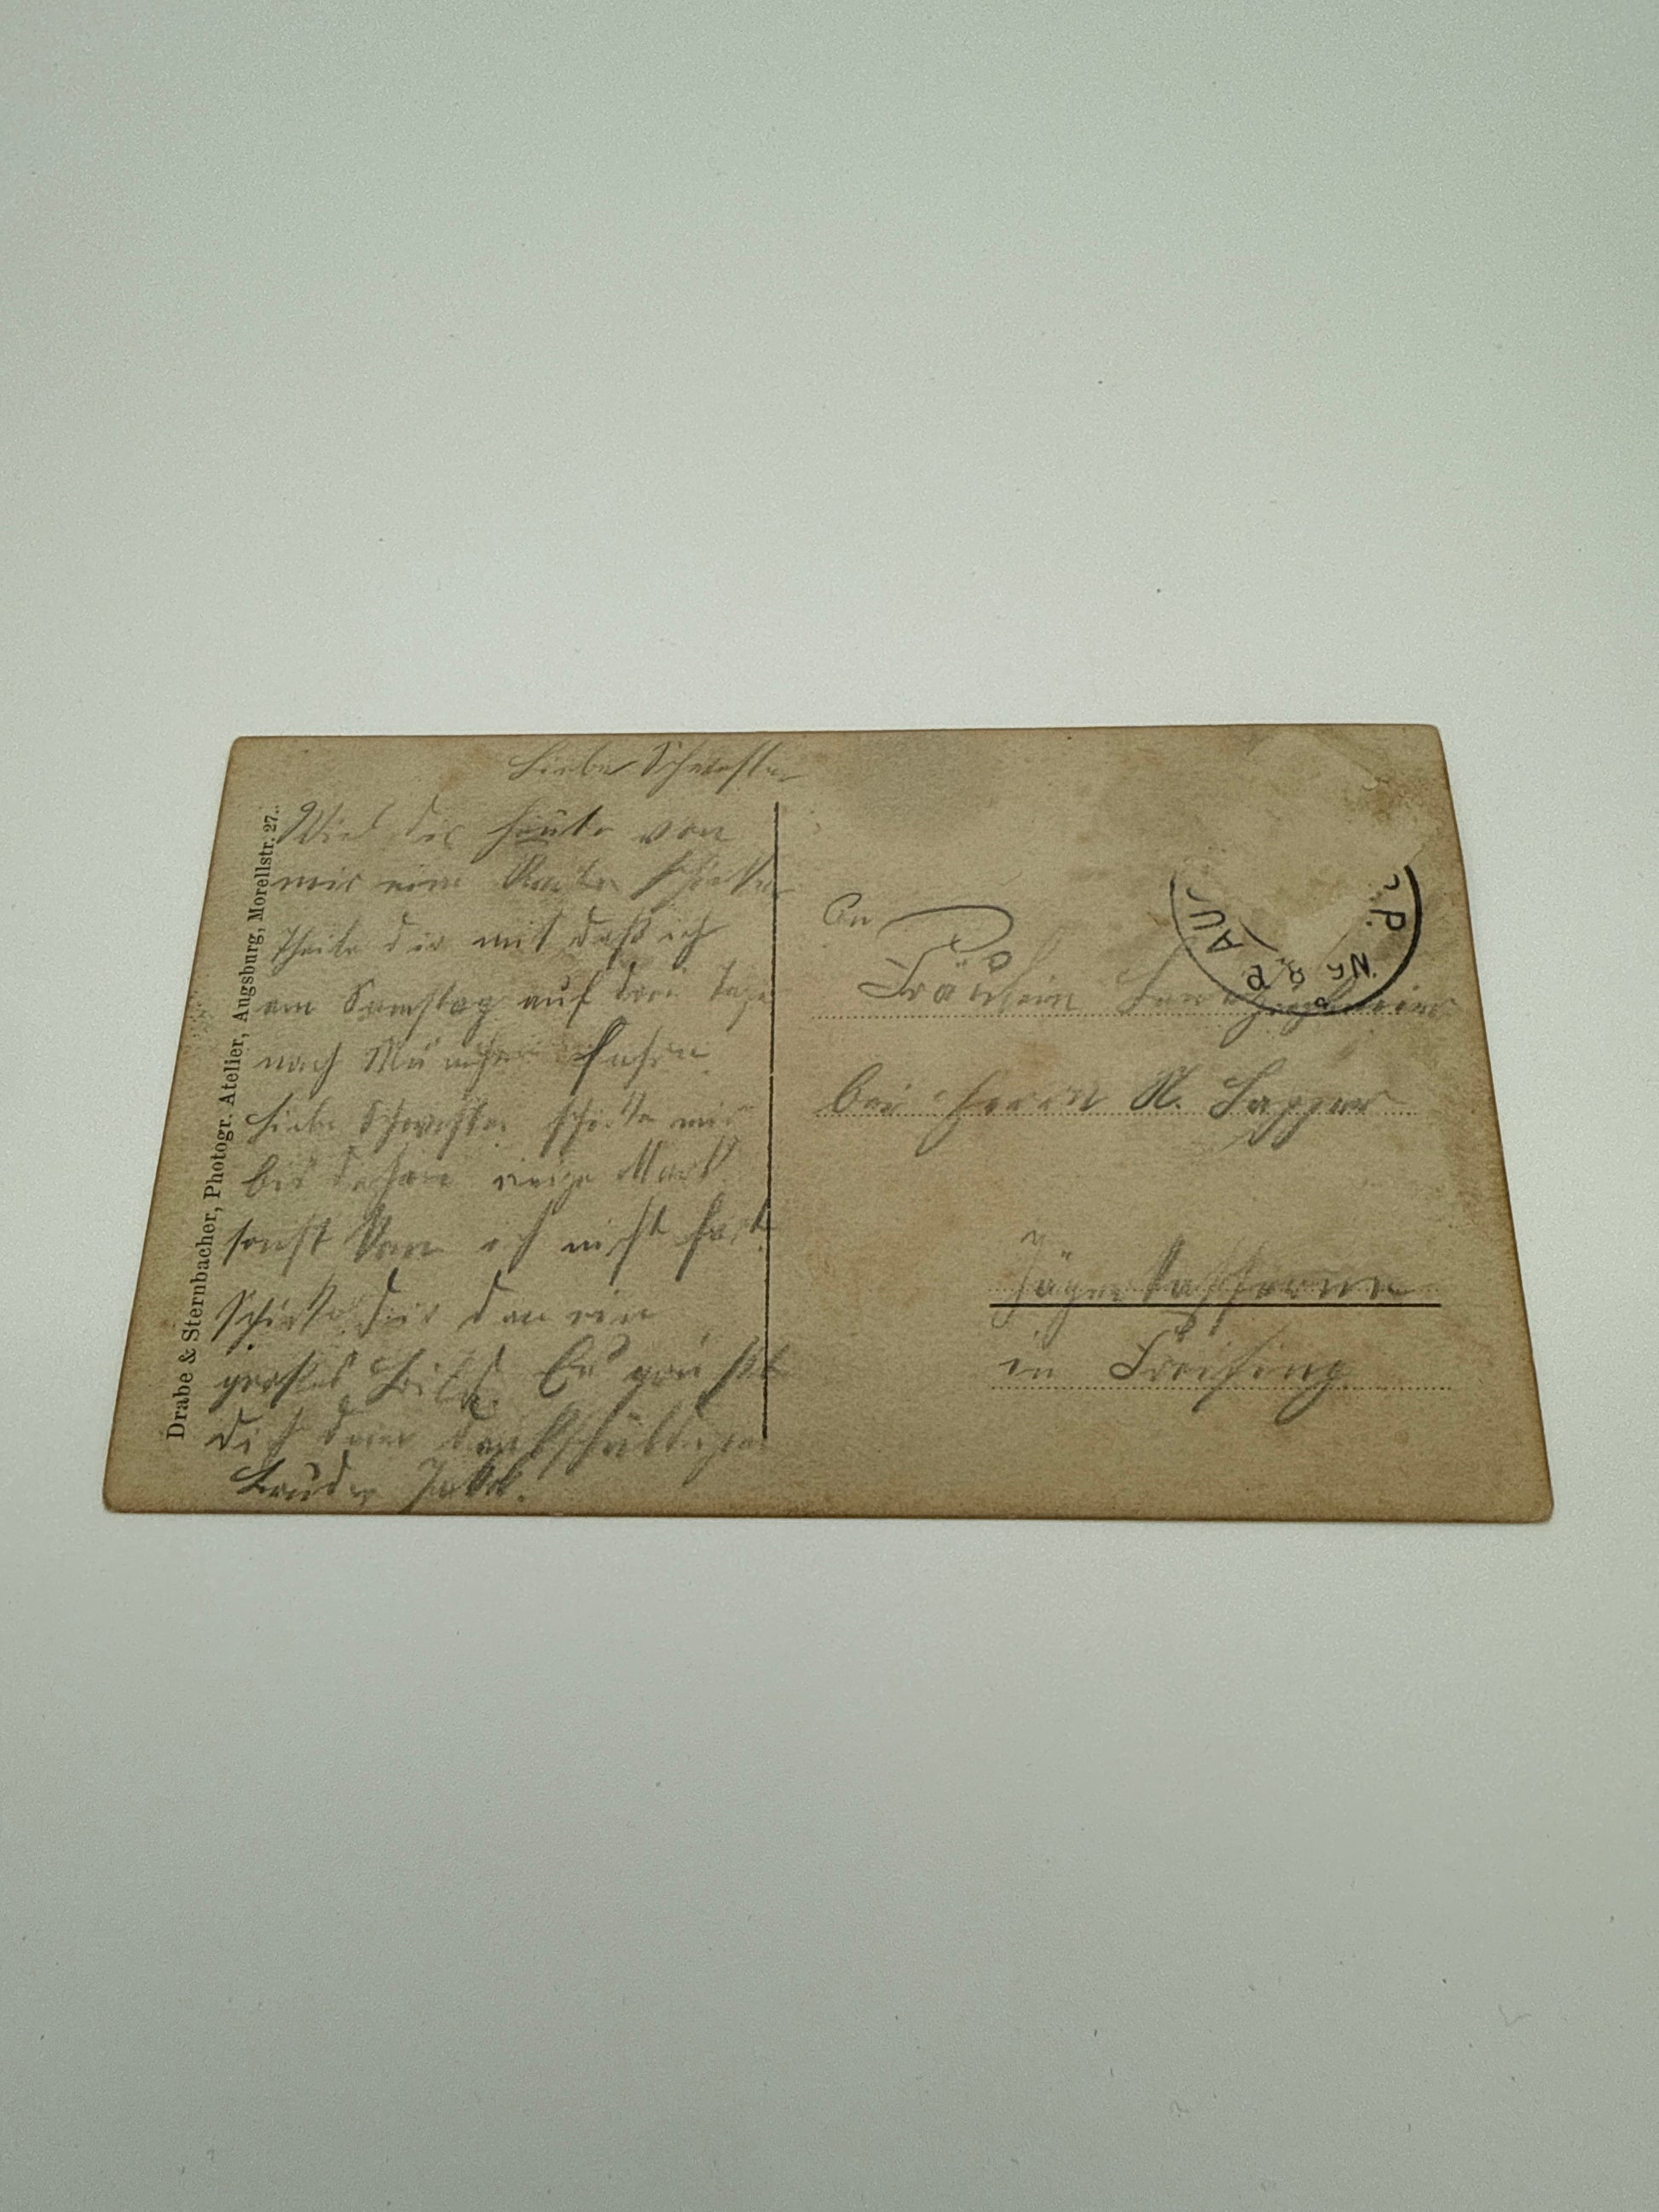 Drabe & Sternbacher, Photogr. Atelier, Augsburg, Morellstr. 27.
Liebe Schwester
Will dir heute von
mir eine Karte schicken
Theile dir mit daß ich
am Samstag auf drei Tage
nach München fahre
Liebe Schwester schicke mir
bis dahin einige Mark
sonst kan ich nicht fort
Schicke dir dan ein
großes Bild. Es grüßt
dich dein
Bruder Jakob.
An
Fräulein
bei Herrn
Jägerkasserne
in Freising
P. AU